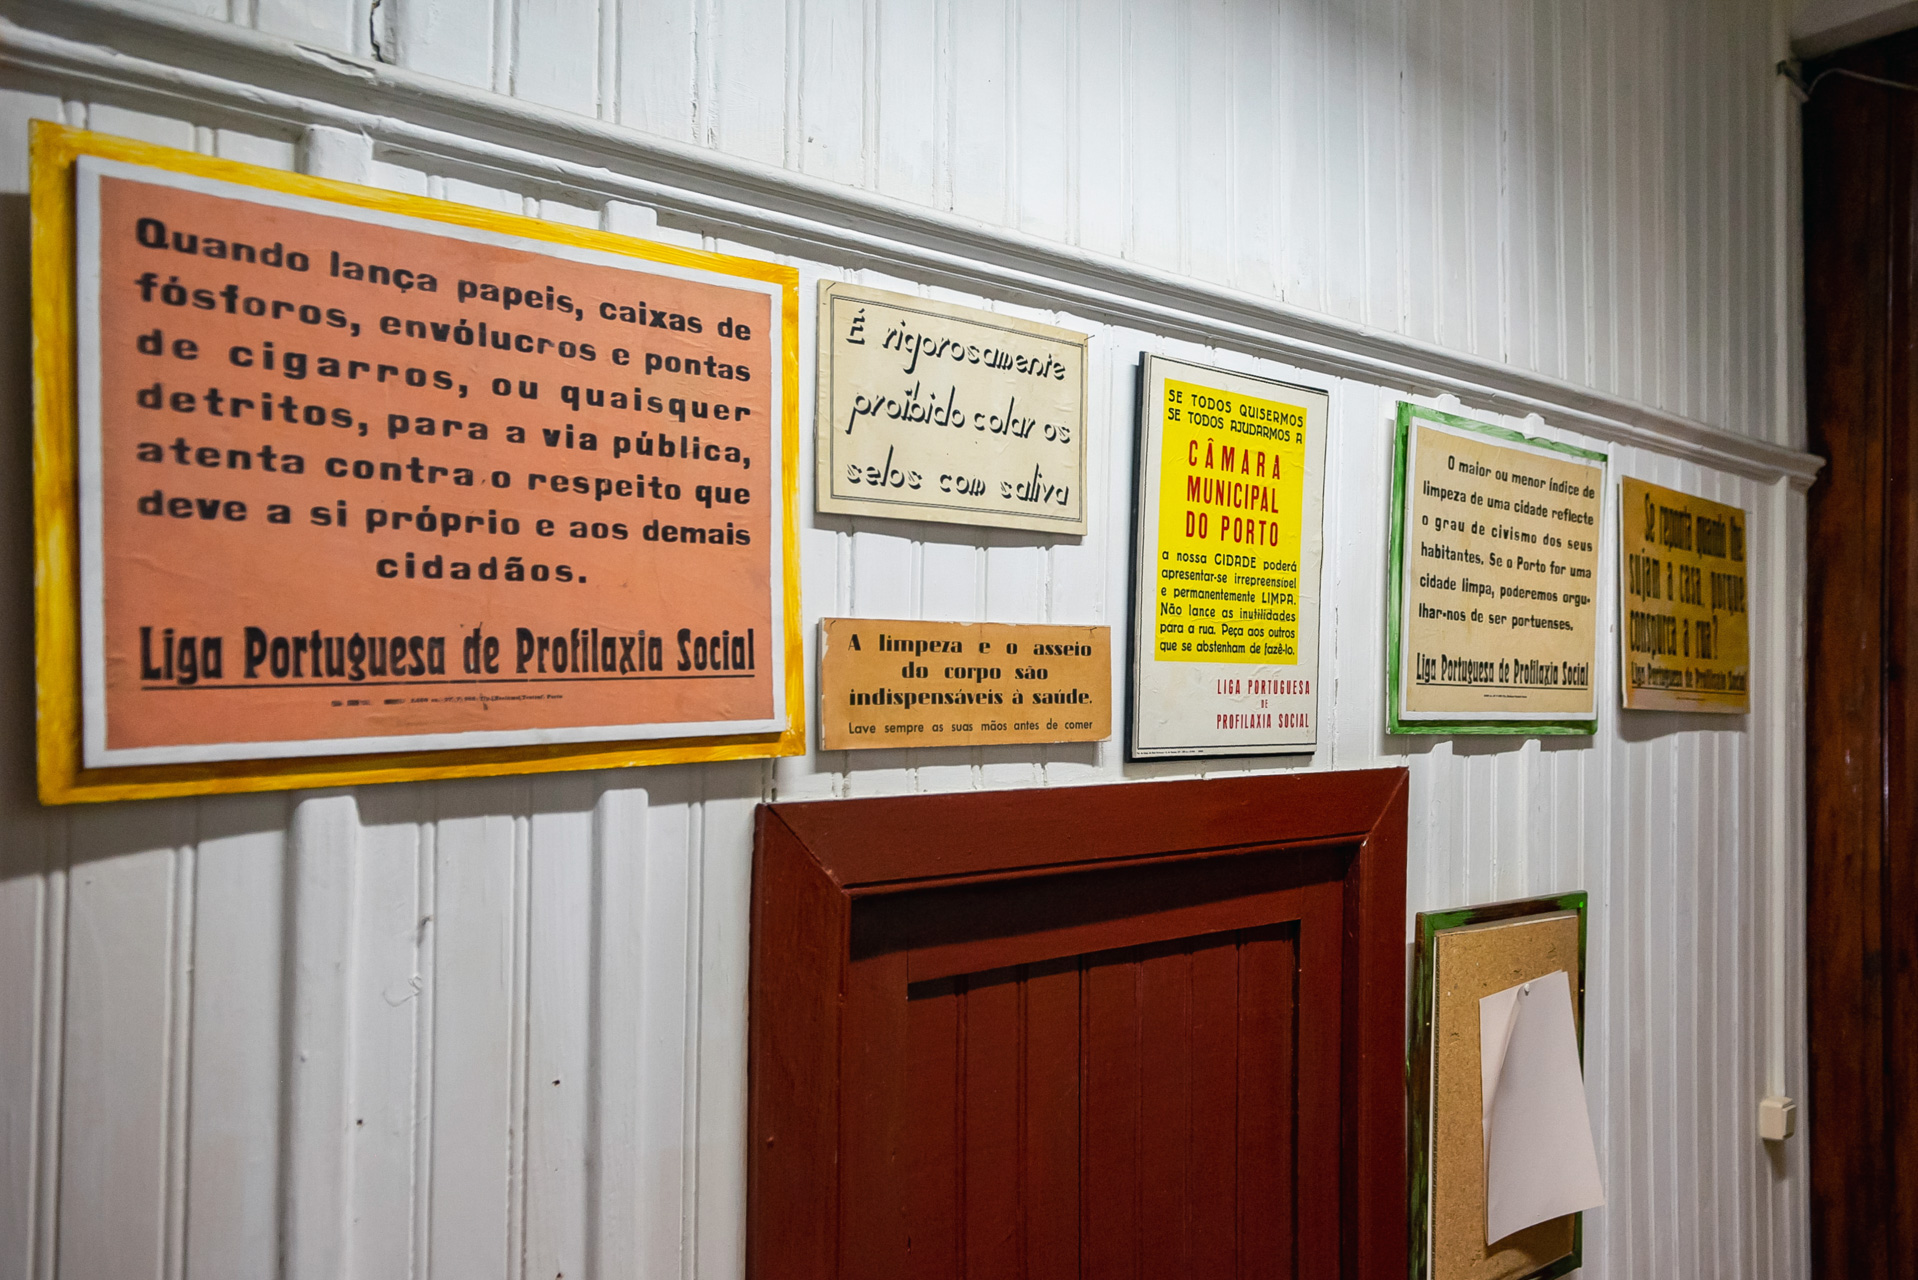 Quando lança papeis, caixas de
fósforos, envólucros e pontas
de cigarros, ou quaisquer
detritos, para a via pública,
atenta contra o respeito que
deve a si próprio e aos demais
cidadãos.
Liga Portuguesa de Profilaxia Social
É rigorosamente
proíbido colar os
selos com saliva
A limpeza e o asseio
do corpo são
indispensáveis à saúde.
Lave sempre as suas mãos antes de comer
SE TODOS QUISERMOS
SE TODOS AJUDARMOS A
CÂMARA
MUNICIPAL
DO PORTO
a nossa CIDADE poderá
apresentar-se irrepreensível
e permanentemente LIMPA.
Não lance as inutilidades
para a rua. Peça aos outros
que se abstenham de fazê-lo.
LIGA PORTUGUESA
DE
PROFILAXIA SOCIAL
O maior ou menor índice de
limpeza de uma cidade reflecte
o grau de civismo dos seus
habitantes. Se o Porto for uma
cidade limpa, poderemos orgu-
lhar-nos de ser portuenses.
Liga Portuguesa de Profilaxia Social
Se reponta quando lhe
sujam a casa, porque
conspurca a rua?
Liga Portuguesa de Profilaxia Social